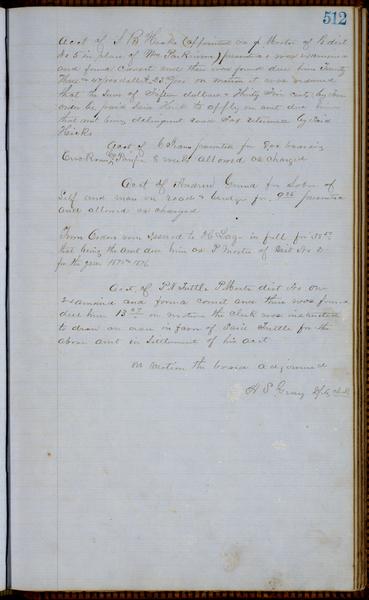 512
Acct of S B Hicks (appointed as P Master of R dist
No 5 in place of Wm Parkinson) presented was examined
and found correct and there was found due him Twenty
Three dollars & on motion it was ordered
that the sum of Fifteen dollars & Thirty Six cents by
order be paid said Hicks to apply on amt due him
that amt being delinquent road Tax returned by said
Hicks
Acct of Evans presented for $ boarding
allowed as charged
Acct of Andrew for labor of
Self and man on road & bridge for presented
and allowed as charged
Town orders was issued to H C Gage in full for
that being the amt due him as P Master of Dist No
for the year 1875 1876
Acct of P A Tuttle P Master dist No one
Examined and found correct and there was found
due him 13 on motion the clerk was instructed
to draw an order in favor of said Tuttle for the
above amt in settlement of his acct
On motion the board adjourned
H S Gray Dpty Clk